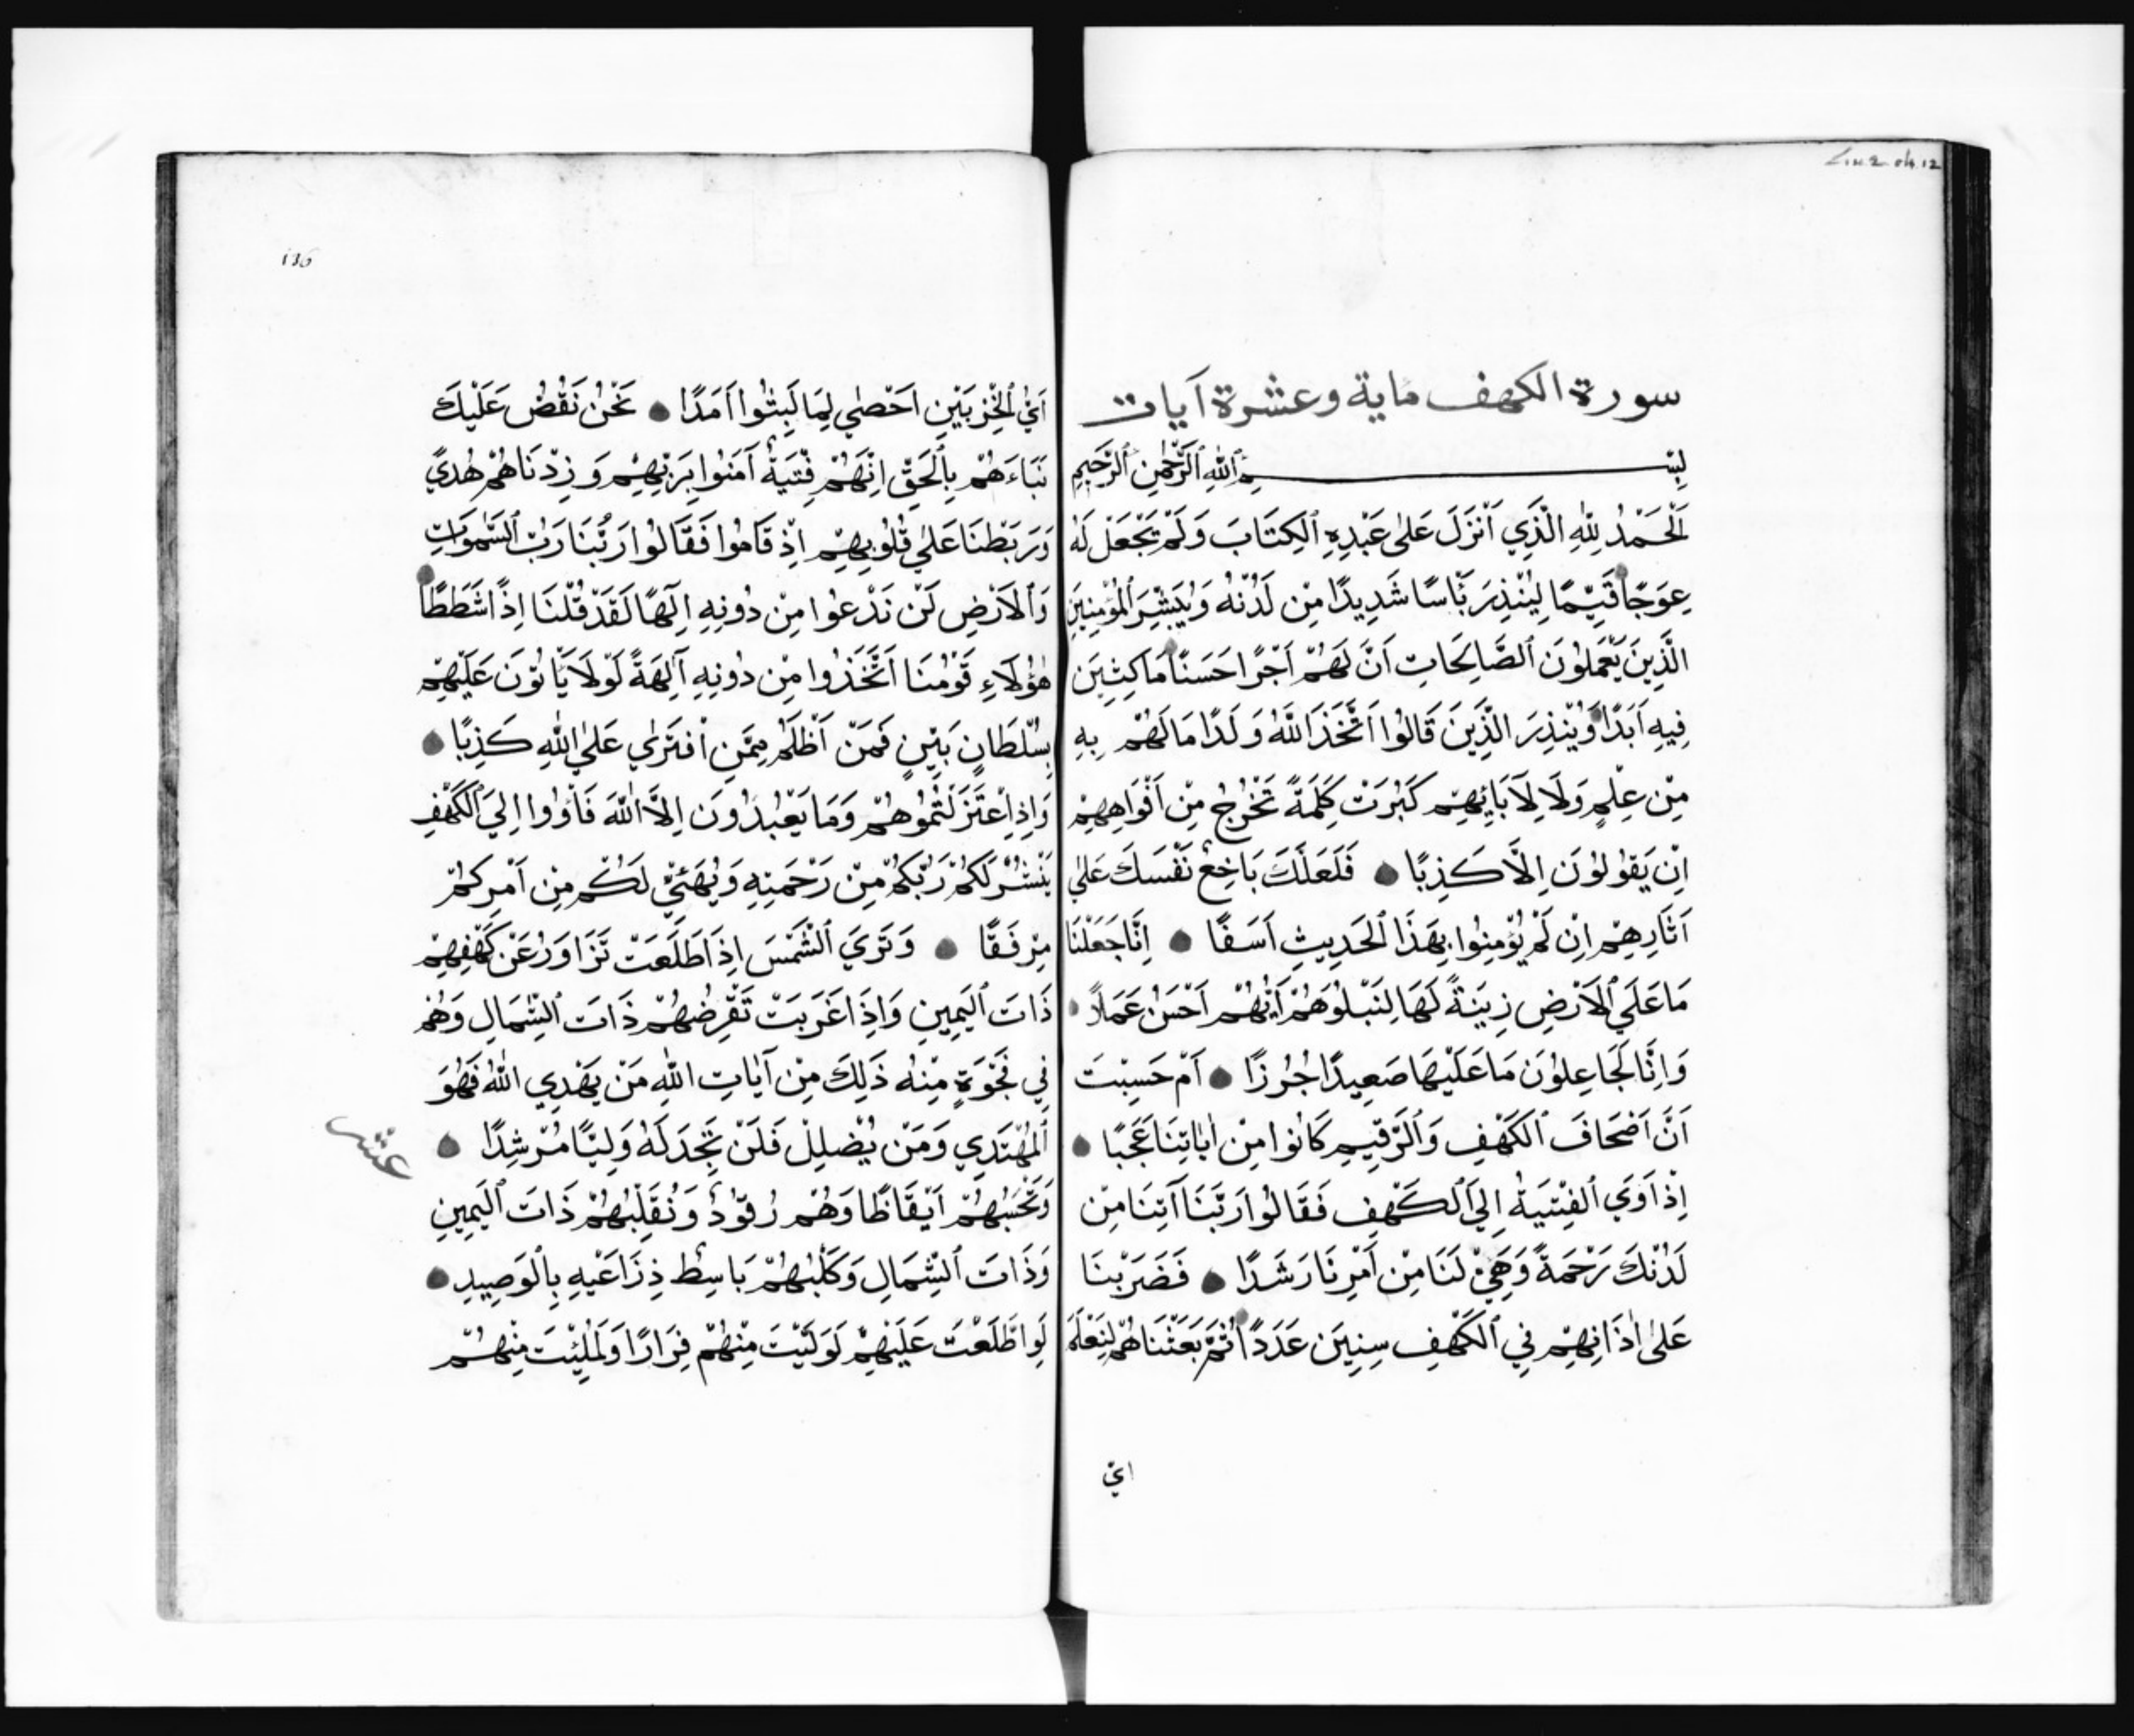 سورة الكهف ماية وعشرة آيات
بِسْمِ ٱللهِ ٱلرَّحْمٰنِ ٱلرَّحِيمِ
اَلْحَمْدُ لِلّٰهِ الَّذِي اَنْزَلَ عَلىٰ عَبْدِهِ ٱلكِتَابَ وَلَمْ يَجْعَلْ لَهُ
عِوَجًا قَيِّمًا لِيُنْذِرَ بَٔاسًا شَدِيدًا مِن لَدُنْهُ وَيُبَشِّرَ ٱلْمُؤْمِنِينَ
الَّذِينَ يَعْمَلُونَ ٱلصَّالِحَاتِ اَنَّ لَهُمْ اَجْرًا حَسَنًا مَاكِثِينَ
فِيهِ اَبَدًا وَيُنْذِرَ الَّذِينَ قَالُوا اَتَّخَذَ اللّٰهُ وَلَدًا مَا لَهُمْ بِهِ
مِنْ عِلْمٍ وَلَا لِآبَايِهِم كَبُرَتْ كَلِمَةً تَخْرُجُ مِنْ اَفْوَاهِهِمْ
اِن يَقُولُونَ اِلَّا كَذِبًا فَلَعَلَّكَ بَاخِعٌ نَفْسَكَ عَلىٰ
آثَارِهِمْ اِن لَمْ يُؤْمِنُوا بِهَذَا ٱلحَدِيثِ اَسَفًا اِنَّا جَعَلْنَا
مَا عَلَي ٱلْاَرْضِ زِينَةً لَهَا لِنَبْلُوَهُمْ اَيُّهُمْ اَحْسَنُ عَمَلًا
وَاِنَّا لَجَاعِلُونَ مَا عَلَيْهَا صَعِيدًا جُرُزًا اَمْ حَسِبْتَ
اَنَّ اَصْحَافَ ٱلكَهْفِ وَٱلرَّقِيمِ كَانُوا مِنْ اٰيَاتِنَا عَجَبًا
اِذْ اَوَي ٱلفِتْيَةُ اِلَي ٱلكَهْفِ فَقَالُوا رَبَّنَا آتِنَا مِنْ
لَدُنْكَ رَحْمَةً وَهَيِّئْ لَنَا مِنْ اَمْرِنَا رَشَدًا فَضَرَبْنَا
عَلىٰ اٰذَانِهِمْ فِي ٱلكَهْفِ سِنِينَ عَدَدًا ثُمَّ بَعَثْنَاهُمْ لِنَعْلَمَ
ايّ
136
اَيُّ ٱلحِزْبَيْنِ اَحْصٰي لِمَا لَبِثُوا اَمَدًا نَحْنُ نَقُصُّ عَلَيْكَ
نَبَاءَهُمْ بِٱلحَقِّ اِنَّهُمْ فِتْيَةٌ آمَنُوا بِرَبِّهِمْ وَزِدْنَاهُمْ هُديً
وَرَبَطْنَا عَلىٰ قُلُوبِهِمْ اِذْ قَامُوا فَقَالُوا رَبُّنَا رَبُّ ٱلسَّمٰوَاتِ
وَٱلْاَرْضِ لَن نَدْعُوا مِنْ دُونِهِ اِلٰهًا لَقَدْ قُلْنَا اِذًا شَطَطًا
هٰؤُلَاءِ قَوْمُنَا اَتَّخَذُوا مِنْ دُونِهِ آلِهَةً لَوْلَا يَأتُونَ عَلَيْهِمْ
بِسُلْطَانٍ بَيِّنٍ فَمَنْ اَظْلَمُ مِمَّنِ افْتَرٰي عَلىٰ اللّٰهِ كَذِبًا
وَاِذِ اِعْتَزَلْتُمُوهُمْ وَمَا يَعْبُدُونَ اِلَّا اللّٰهَ فَأوُوا اِلَي ٱلكَهْفِ
يَنْشُرْ لَكُمْ رَبُّكُمْ مِنْ رَحْمَتِهِ وَيُهَيِّئْ لَكُمْ مِن اَمْرِكُمْ
مِرْفَقًا وَتَرَي ٱلشَّمْسَ اِذَا طَلَعَتْ تَزَاوَرُ عَنْ كَهْفِهِمْ
ذَاتَ ٱليَمِينِ وَاِذَا غَرَبَتْ تَقْرِضُهُمْ ذَاتَ ٱلشِّمَالِ وَهُمْ
فِي فَجْوَةٍ مِنْهُ ذَلِكَ مِنْ آيَاتِ اللّٰهِ مَنْ يَهْدِي اللّٰهُ فَهُوَ
ٱلمُهْتَدِي وَمَنْ يُضْلِلْ فَلَنْ تَجِدَ لَهُ وَلِيًّا مُرْشِدًا
عشر
وَتَحْسَبُهُمْ اَيْقَاظًا وَهُمْ رُقُودٌ وَنُقَلِّبُهُمْ ذَاتَ ٱليَمِينِ
وَذَاتَ ٱلشِّمَالِ وَكَلْبُهُمْ بَاسِطٌ ذِرَاعَيْهِ بِٱلْوَصِيدِ
لَوِ اطَّلَعْتَ عَلَيْهِمْ لَوَلَّيْتَ مِنْهُمْ فِرَارًا وَلَمُلِئْتَ مِنْهُمْ